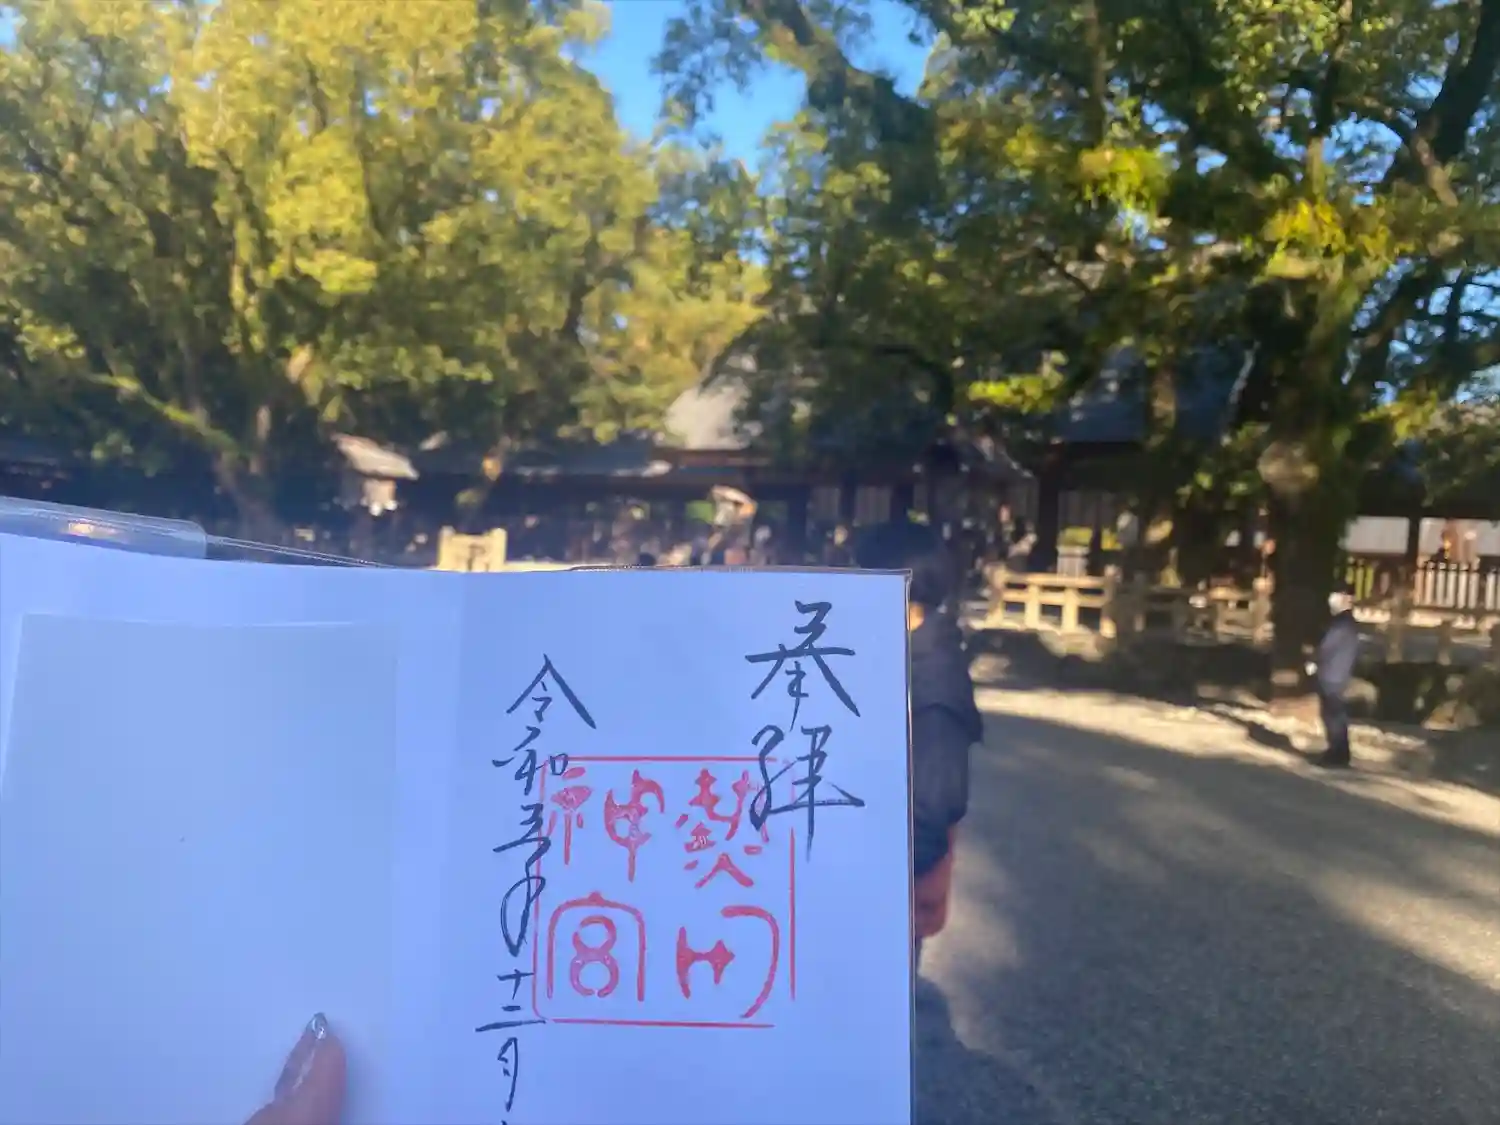 奉拝
熱田
神宮
令和五年十二月